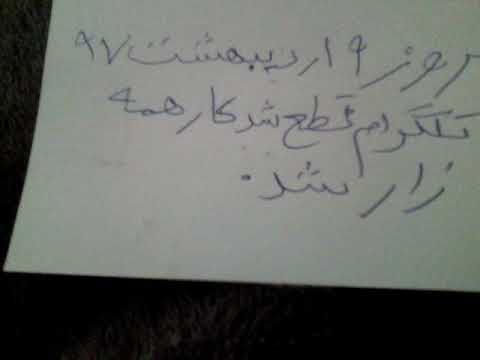 مروز ۹ اردیبهشت ۹۷
تلگرام قطع شد کار همه
زار شد.